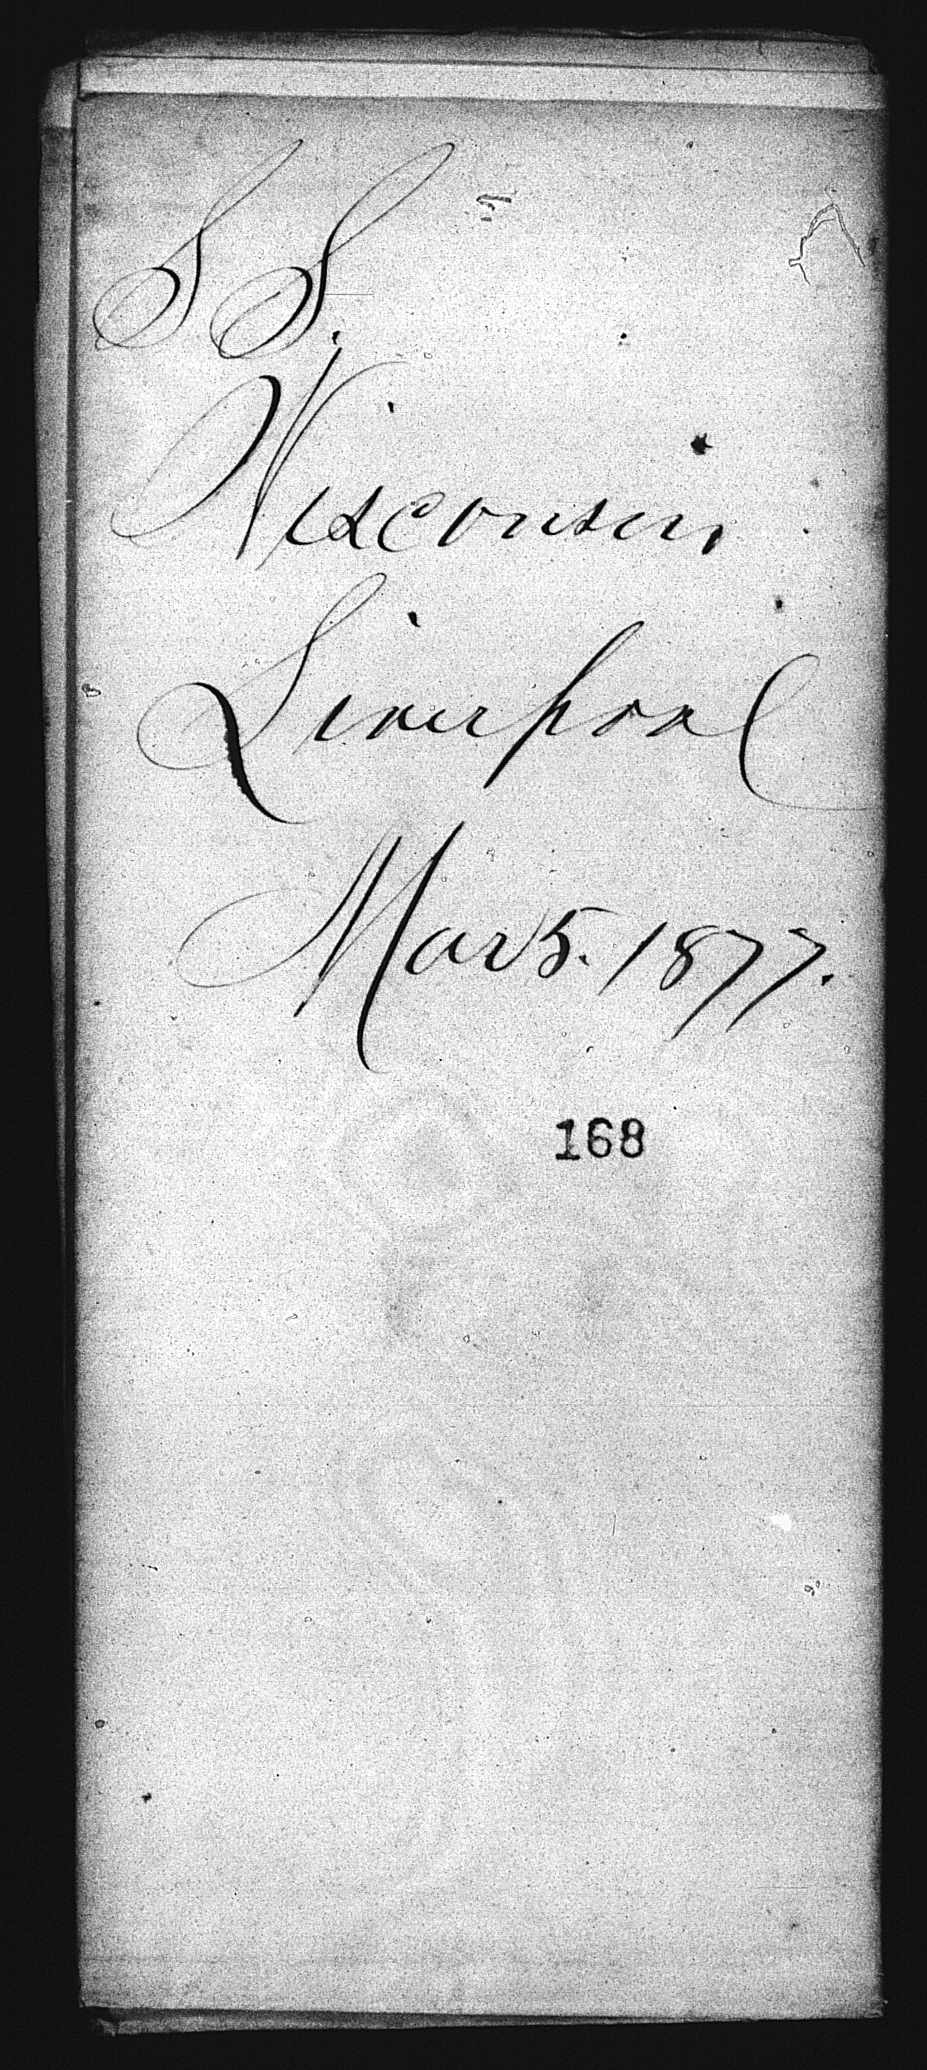 S S.
Wisconsin
Liverpool
Mar 5. 1877.
168